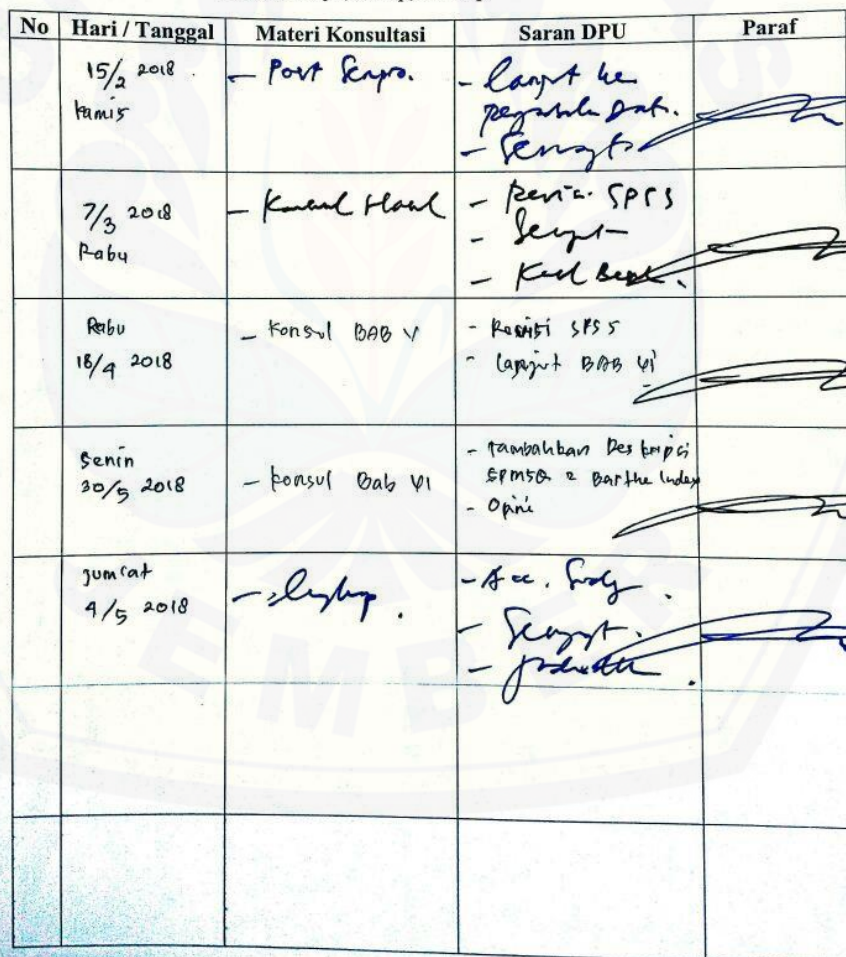 No Hari / Tanggal Materi Konsultasi Saran DPU Paraf
15/2 2018
Kamis
- Post Sempro.
- Lanjut ke
Data.
- Semangat
7/3 2018
Rabu
- Konsul Hasil
- Revisi SPSS
- Semangat
-
Rabu
18/4 2018
- Konsul BAB V
- Revisi SPSS
- Lanjut BAB VI
Senin
30/5 2018
- Konsul Bab VI
- Tambahkan Deskripsi
SPMSQ & Barthe Index
- Opini
Jumat
4/5 2018
-
- Acc.
- Semangat.
-
EMBER